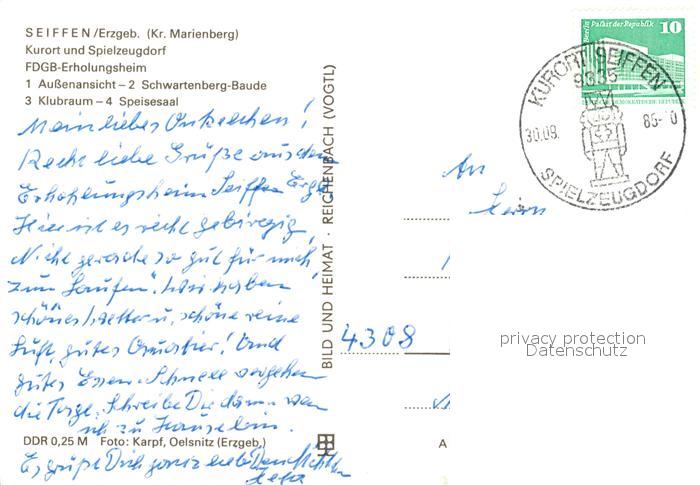 SEIFFEN/Erzgeb. (Kr. Marienberg)
Kurort und Spielzeugdorf
FDGB-Erholungsheim
1 Außenansicht – 2 Schwartenberg-Baude
3 Klubraum – 4 Speisesaal
Mein liebes !
Recht liebe Grüße aus dem
Erholungsheim Seiffen Erzg.
Hier ist es recht gebirgig,
Nicht gerade so gut für mich,
zum Laufen". Wir haben
schönes Wetter u. schöne reine
Luft, gutes Quartier! Und
gutes Essen. Schnell vergehen
die Tage. Schreibe Dir dann wenn
ich zu Hause bin.
DDR 0,25 M Foto: Karpf, Oelsnitz (Erzgeb.)
Es grüßt Dich ganz lieb
BILD UND HEIMAT · REICHENBACH (VOGTL)
An
Herrn
4308
A
Berlin Palast der Republik 10
DEUTSCHE DEMOKRATISCHE REPUBLIK
KURORT SEIFFEN
9335
30.09. 86-10
SPIELZEUGDORF
privacy protection
Datenschutz